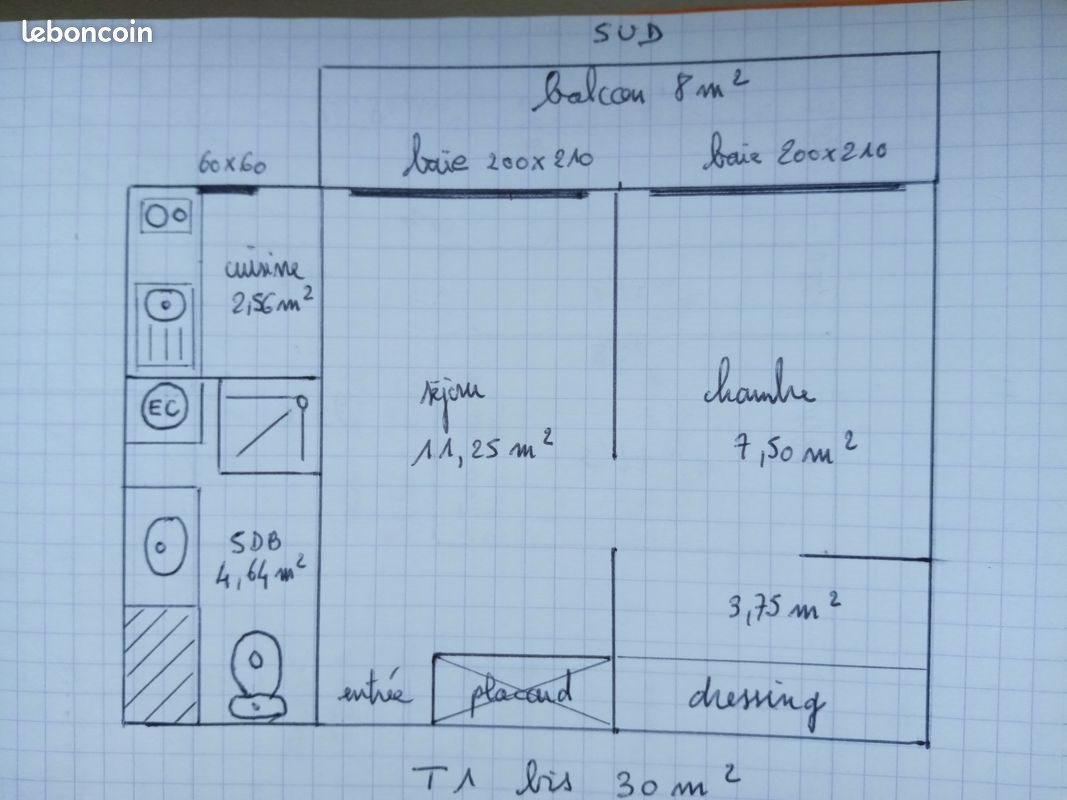 leboncoin
SUD
balcon 8 m²
60x60
baie 200x210
baie 200x210
cuisine
2,56 m²
séjour
11,25 m²
chambre
7,50 m²
EC
SDB
4,64 m²
3,75 m²
entrée
placard
dressing
T1 bis 30 m²